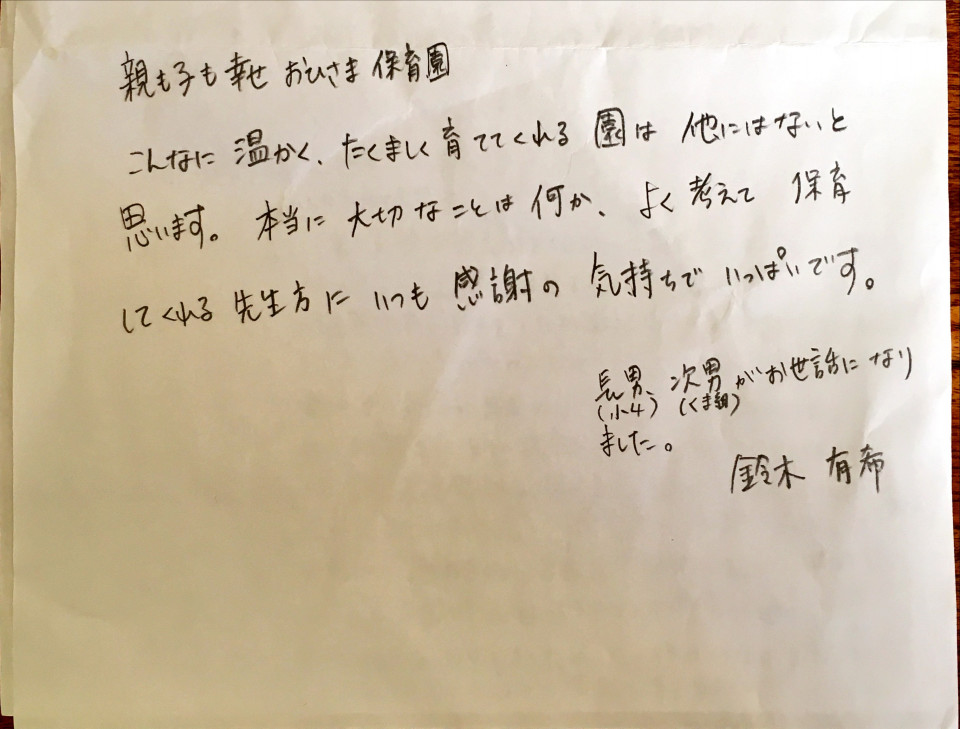 親も子も幸せ おひさま保育園
こんなに温かく、たくましく育ててくれる園は他にはないと
思います。本当に大切なことは何か、よく考えて保育
してくれる先生方にいつも感謝の気持ちでいっぱいです。
長男、次男がお世話になり
(小4) (くま組)
ました。
鈴木 有希